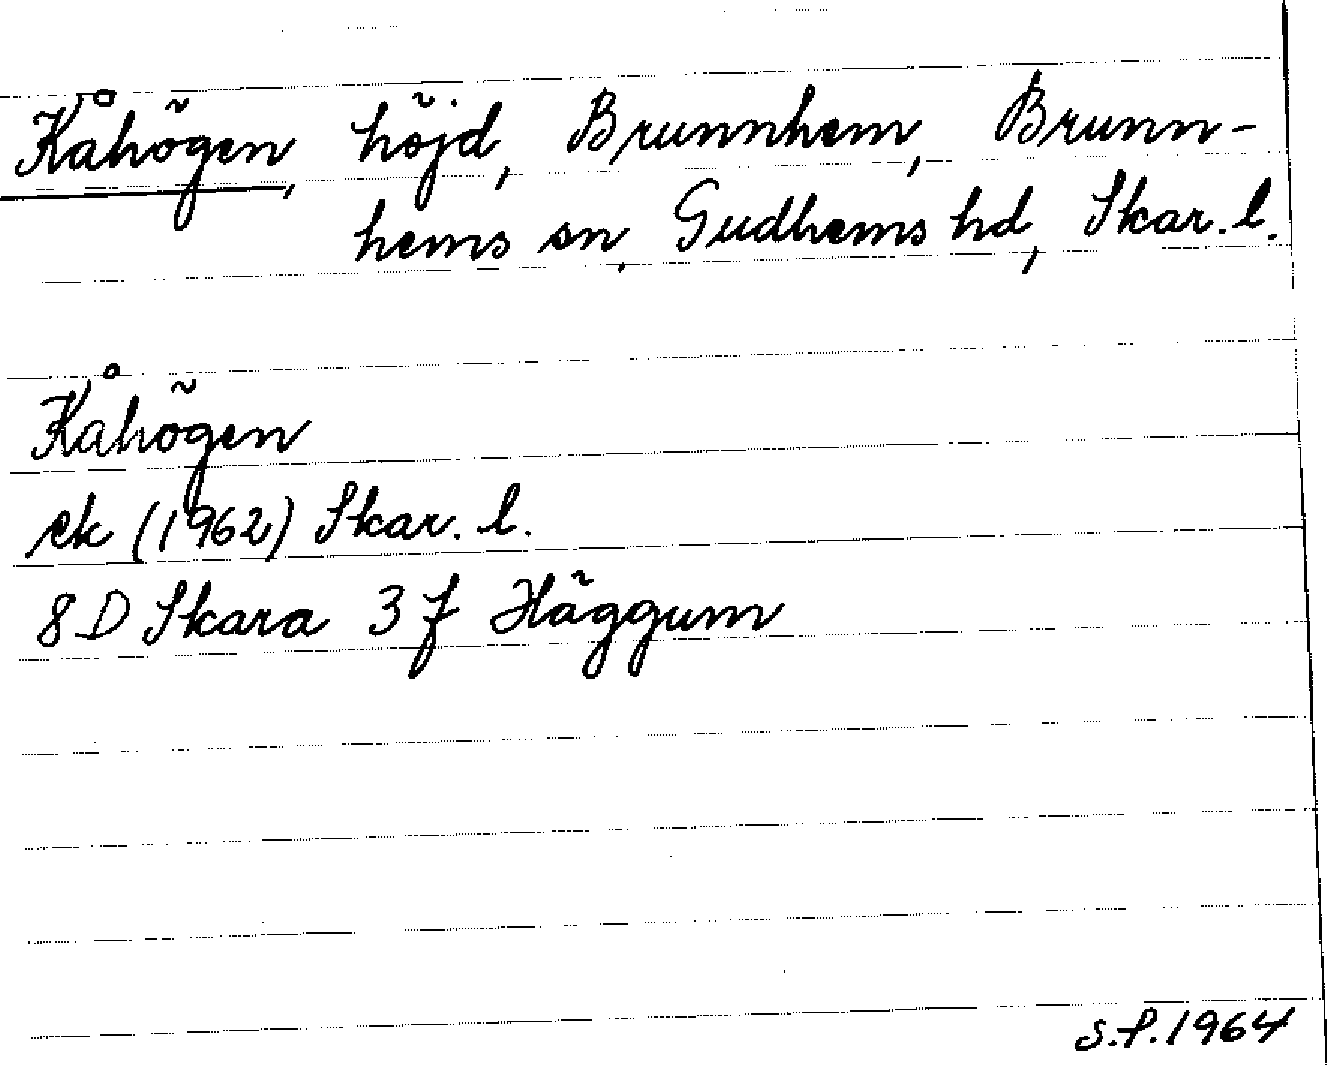 Kåhögen, höjd, Brunnhem, Brunn-
hems sn, Gudhems hd, Skar. l.
Kåhögen
ek (1962) Skar. l.
8D Skara 3f Häggum
S.F. 1964